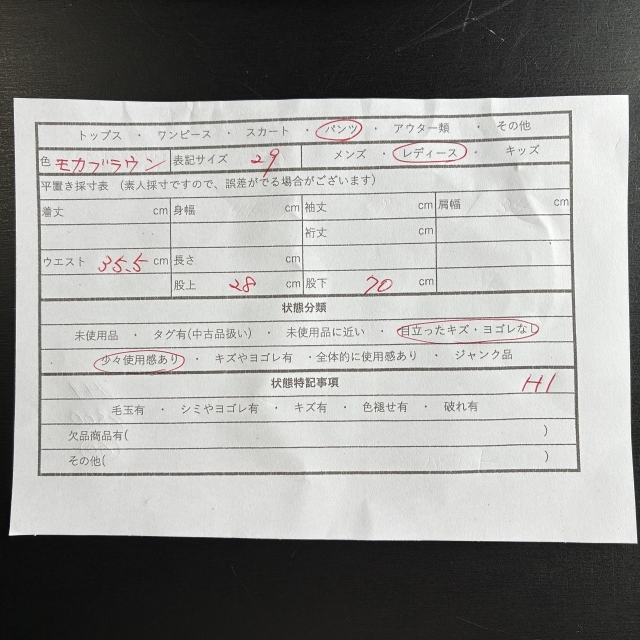 トップス ・ ワンピース ・ スカート ・ パンツ ・ アウター類 ・ その他
色 モカブラウン 表記サイズ 29 メンズ ・ レディース ・ キッズ
平置き採寸表 (素人採寸ですので、誤差がでる場合がございます)
着丈 cm 身幅 cm 袖丈 cm 肩幅 cm
裄丈 cm
ウエスト 35.5 cm 長さ cm
股上 28 cm 股下 70 cm
状態分類
未使用品 ・ タグ有(中古品扱い) ・ 未使用品に近い ・ 目立ったキズ・ヨゴレなし
少々使用感あり ・ キズやヨゴレ有 ・全体的に使用感あり ・ ジャンク品
状態特記事項 H1
毛玉有 ・ シミやヨゴレ有 ・ キズ有 ・ 色褪せ有 ・ 破れ有
欠品商品有( )
その他( )